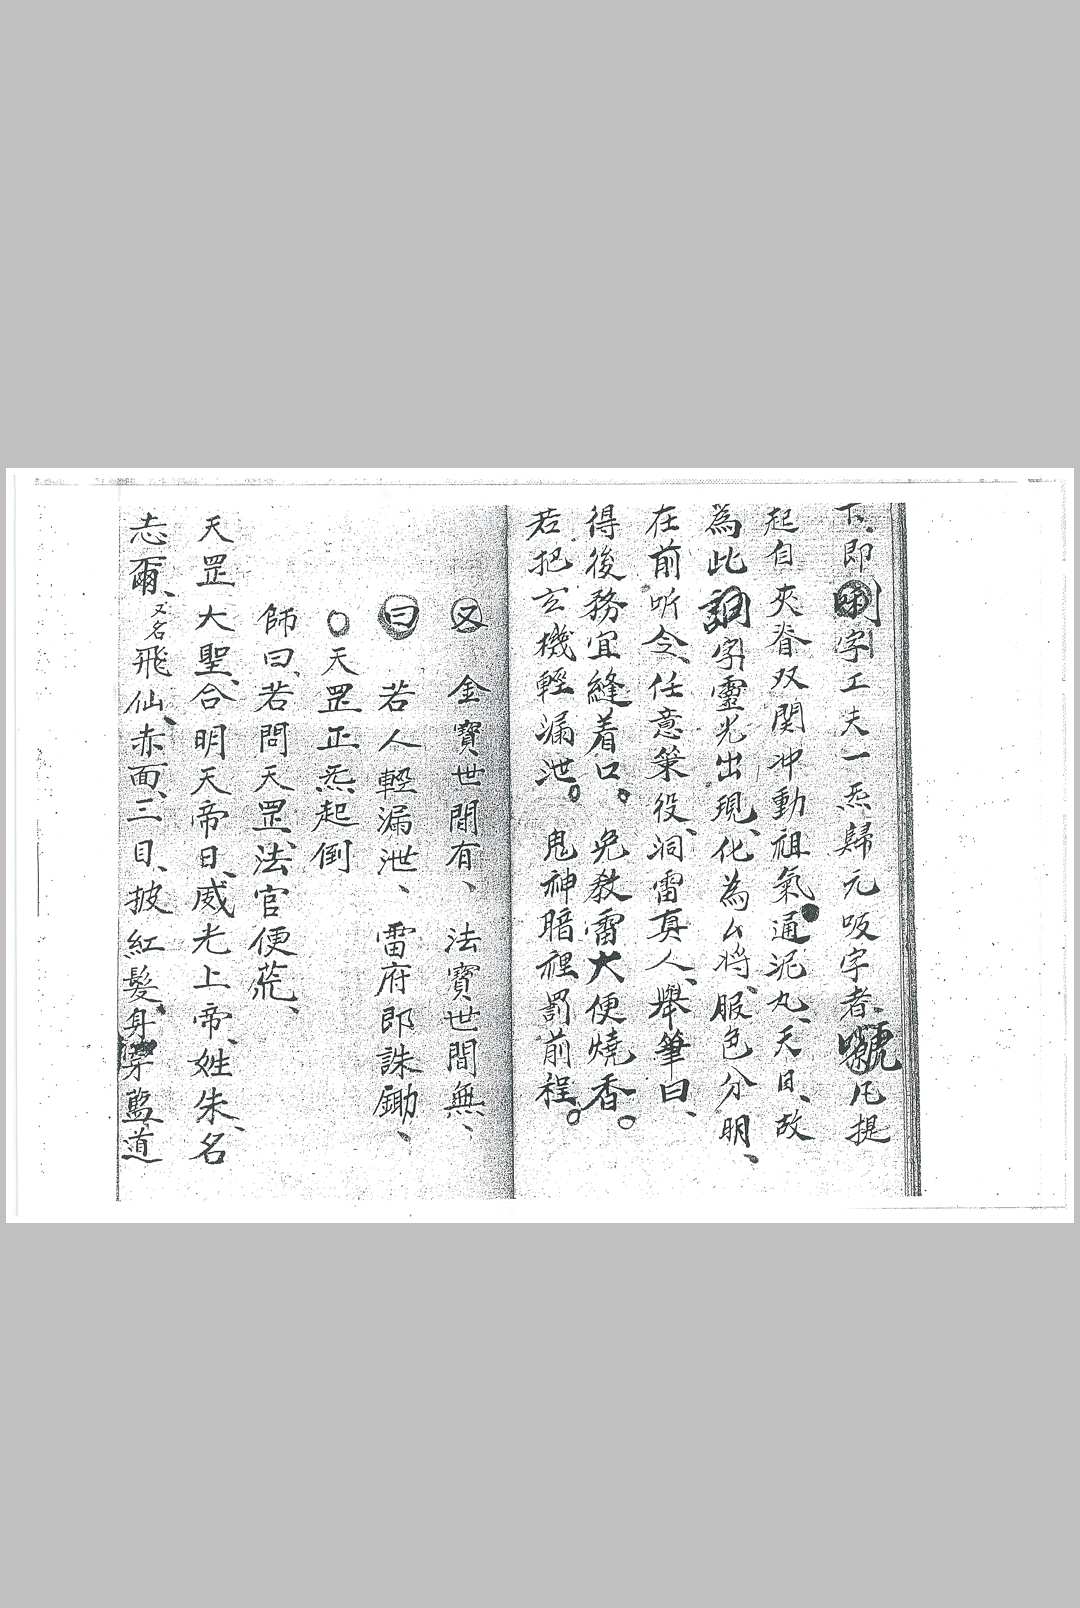 下、即字工夫一炁歸元吸字者、凡提
起自夾脊双関冲動祖氣通泥丸、天目、故
為此字靈光出現、化為么將、服色分明、
在前听令、任意筞役、洞雷真人、舉筆曰、
得後務宜縫着口。免教雷大便燒香。
若把玄機輕漏泄。鬼神暗裡罰前程。
又 金寶世間有、法寶世間無、
曰 若人輕漏泄、雷府即誅鋤、
○天罡正炁起倒
師曰、若問天罡、法官便慌、
天罡大聖、合明天帝日、威光上帝、姓朱、名
志爾、又名飛仙、赤面、三目、披紅髮、身穿藍道